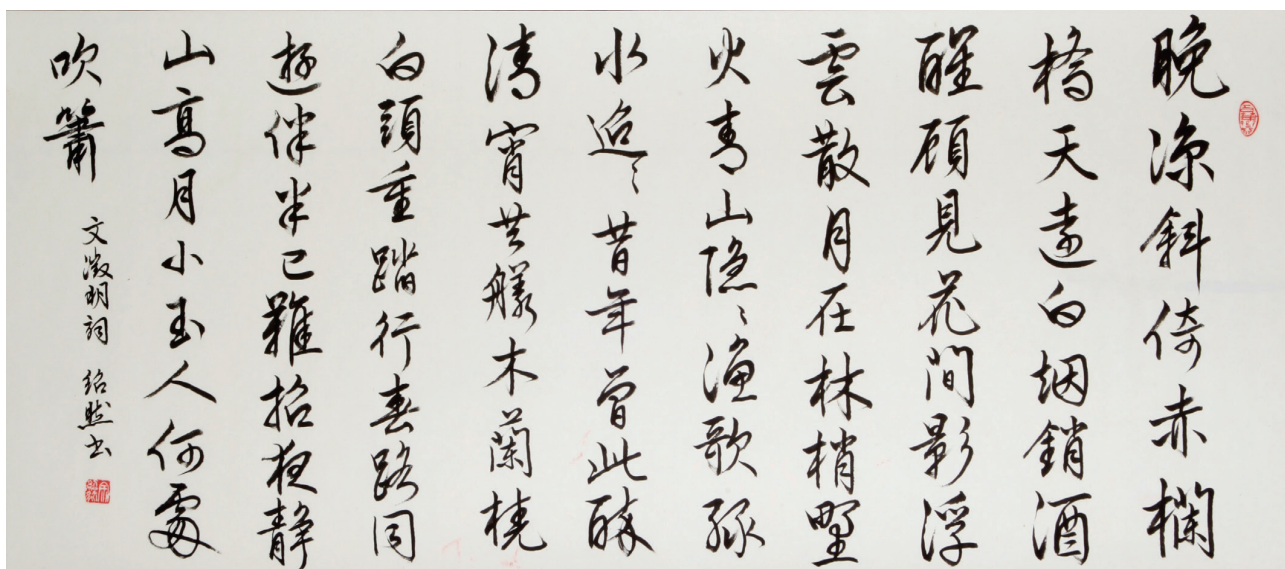 晚涼斜倚赤欄
橋天遠白烟銷酒
醒顧見花間影浮
雲散月在林梢野
火青山隱〻漁歌緑
水迢〻昔年曾此醉
清宵共艤木蘭橈
白頭重踏行春路同
遊伴半已難招夜静
山高月小玉人何處
吹簫
文徵明詞 紹然书